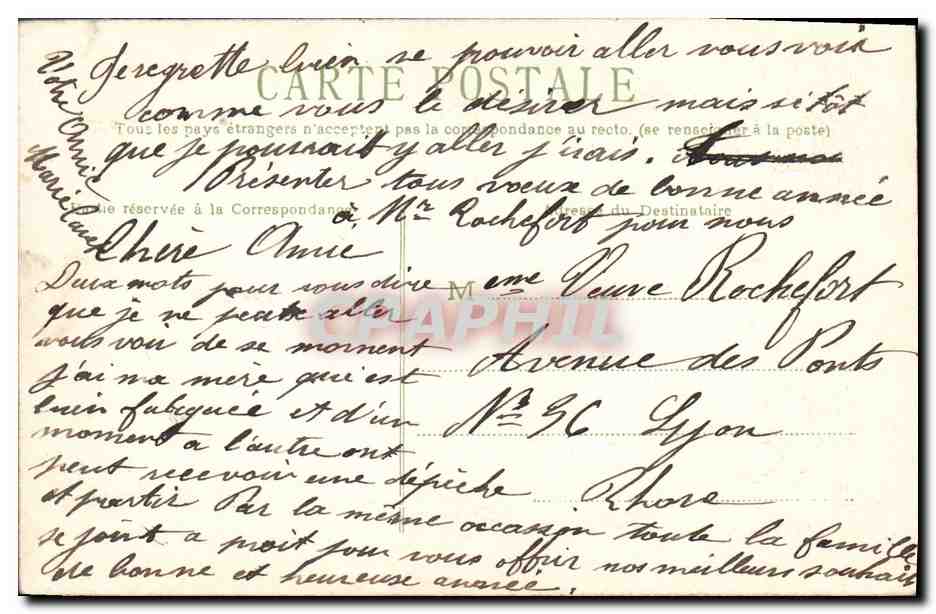 Je regrette bien se pouvoir aller vous voir
CARTE POSTALE
comme vous le désirer mais si tôt
Tous les pays étrangers n'acceptent pas la correspondance au recto. (se renseigner à la poste)
que je pourrait y aller j'irais.
Présenter tous vœux de bonne année
Partie réservée à la Correspondance
Adresse du Destinataire
à Mr Rochefort pour nous
Votre Amie
Marie
Chère Amie
Deux mots pour vous dire
que je ne peux aller
vous voir de se moment
j'ai ma mère qui est
bien fatiguée et d'un
moment a l'autre ont
peut recevoir une dépèche
et partir Par la même occassion toute la famille
se joint a moit pour vous offrir nos meilleurs souhait
de bonne et heureuse année.
Meme Veuve Rochefort
Avenue des Ponts
No 36 Lyon
Rhone
CPAPHIL